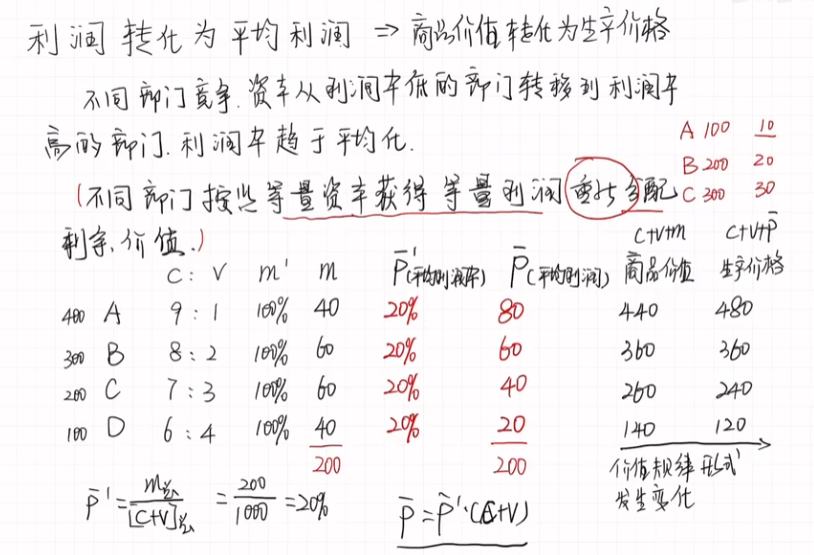 利润转化为平均利润 ⇒ 商品价值转化为生产价格
不同部门竞争.资本从利润率低的部门转移到利润率
高的部门.利润率趋于平均化.
A 100 10
B 200 20
C 300 30
(不同部门按照等量资本获得等量利润重新分配
剩余价值.)
C : V m' m P̄'(平均利润率) P̄(平均利润) C+V+m 商品价值 C+V+P̄ 生产价格
400 A 9 : 1 100% 40 20% 80 440 480
300 B 8 : 2 100% 60 20% 60 360 360
200 C 7 : 3 100% 60 20% 40 260 240
100 D 6 : 4 100% 40 20% 20 140 120
200 200
价值规律形式
发生变化
P̄' = m总/[C+V]总 = 200/1000 = 20%
P̄ = P̄'·(C+V)